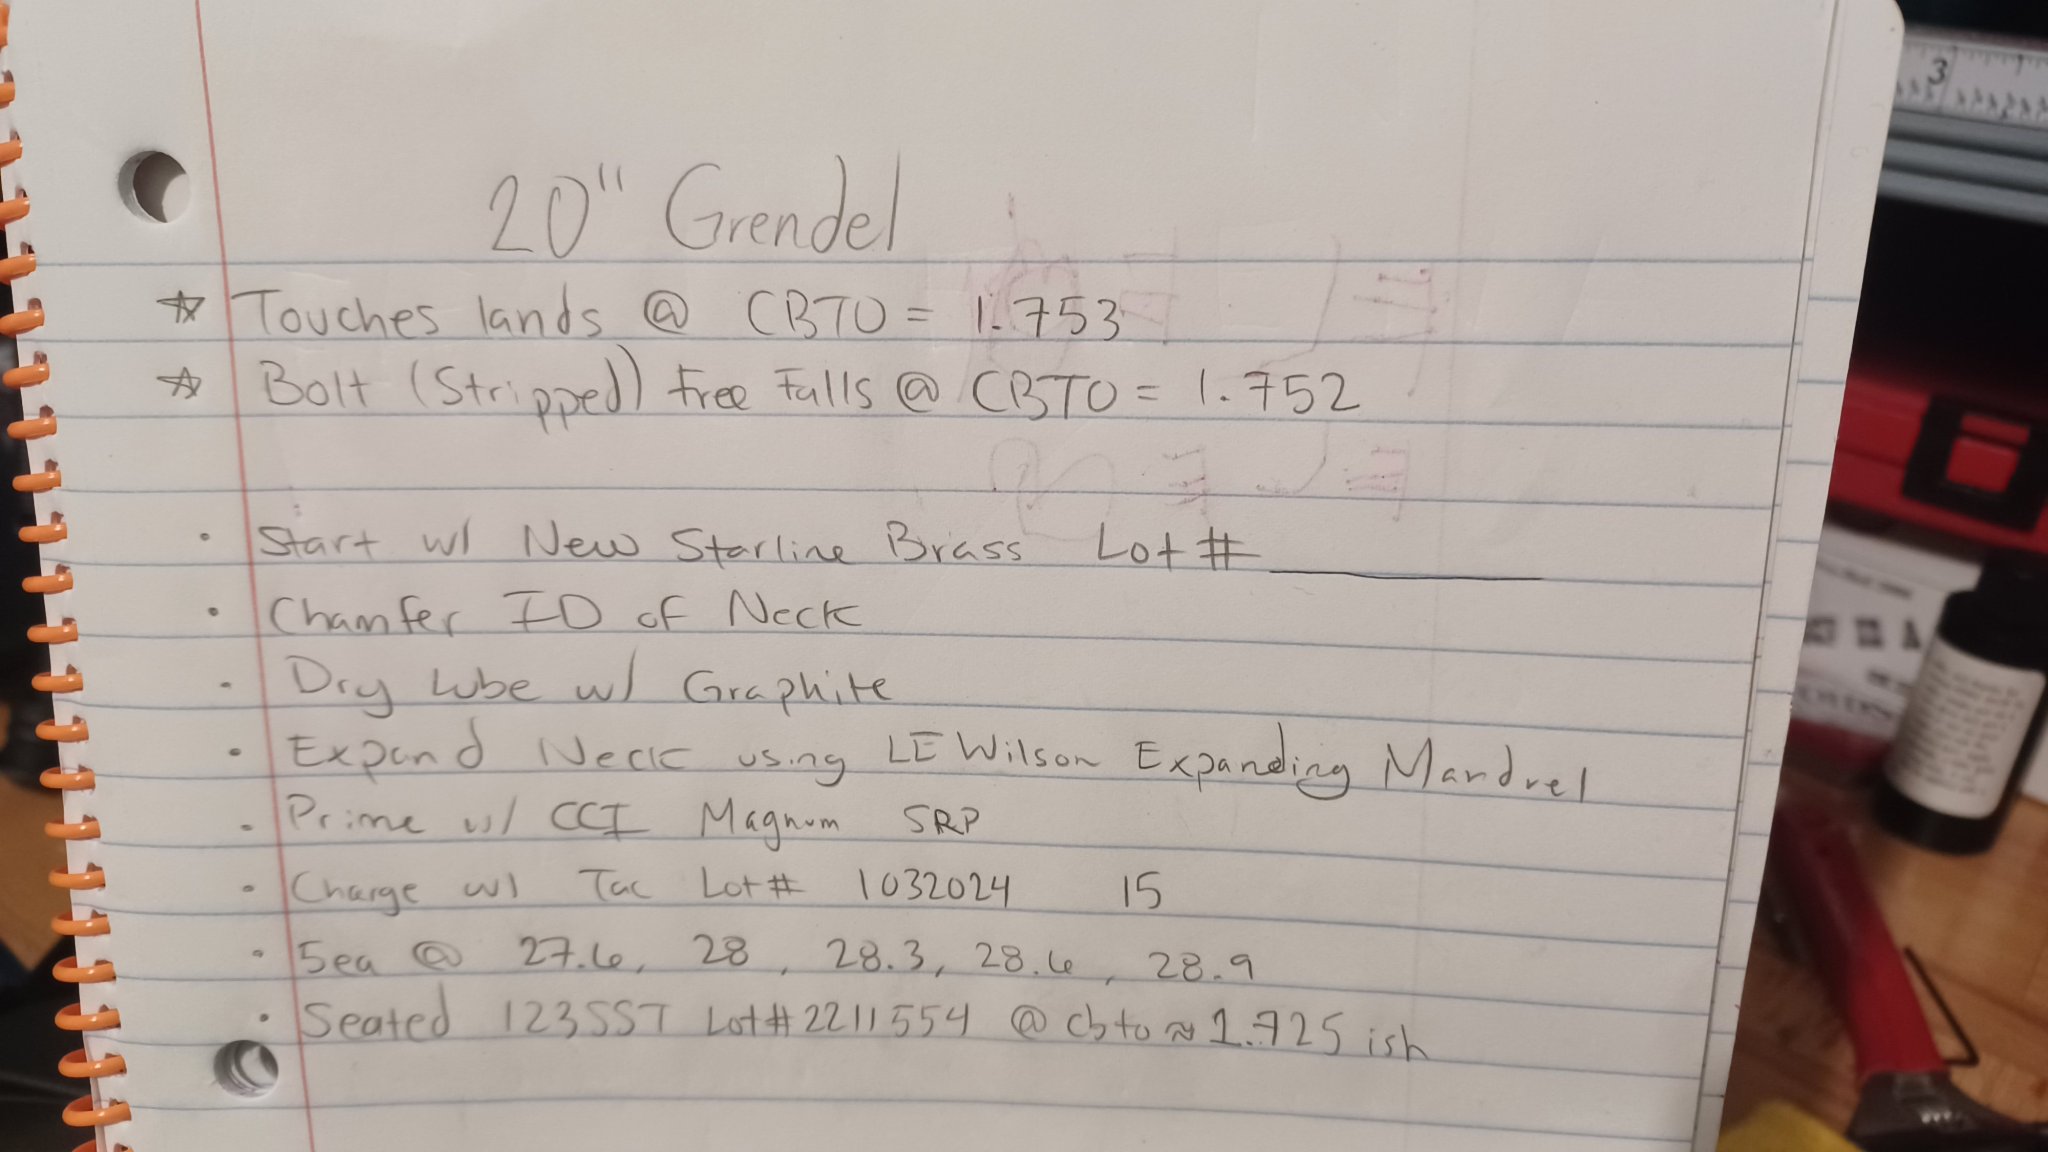 20" Grendel
☆ Touches lands @ CBTO = 1.753
☆ Bolt (Stripped) Free Falls @ CBTO = 1.752
· Start w/ New Starline Brass Lot # ________
· Chamfer ID of Neck
· Dry lube w/ Graphite
· Expand Neck using LE Wilson Expanding Mandrel
· Prime w/ CCI Magnum SRP
· Charge w/ Tac Lot# 1032024 15
· 5ea @ 27.6, 28, 28.3, 28.6, 28.9
· Seated 123SST Lot# 2211554 @ cbto ≈ 1.725 ish
3